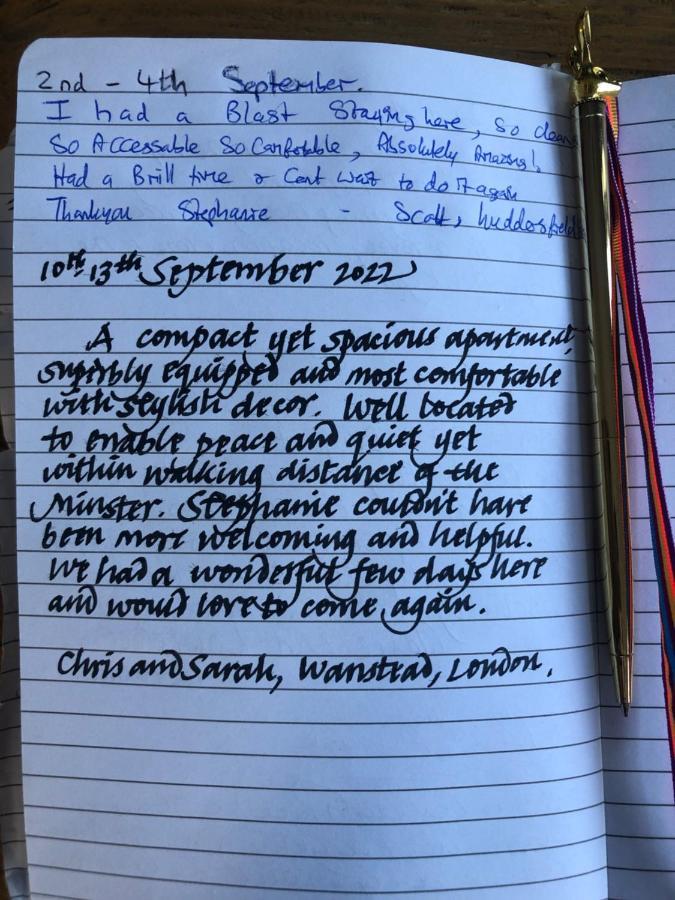 2nd - 4th September.
I had a Blast Staying here, So clean
So Accessable So Comfortable, Absolutely Amazing!,
Had a Brill time & Cant wait to do it again
Thankyou Stephanie - Scott, huddersfield
10th 13th September 2022
A compact yet spacious apartment,
superbly equipped and most comfortable
with stylish decor. Well located
to enable peace and quiet yet
within walking distance of the
Minster. Stephanie couldn't have
been more welcoming and helpful.
We had a wonderful few days here
and would love to come again.
Chris and Sarah, Wanstead, London.